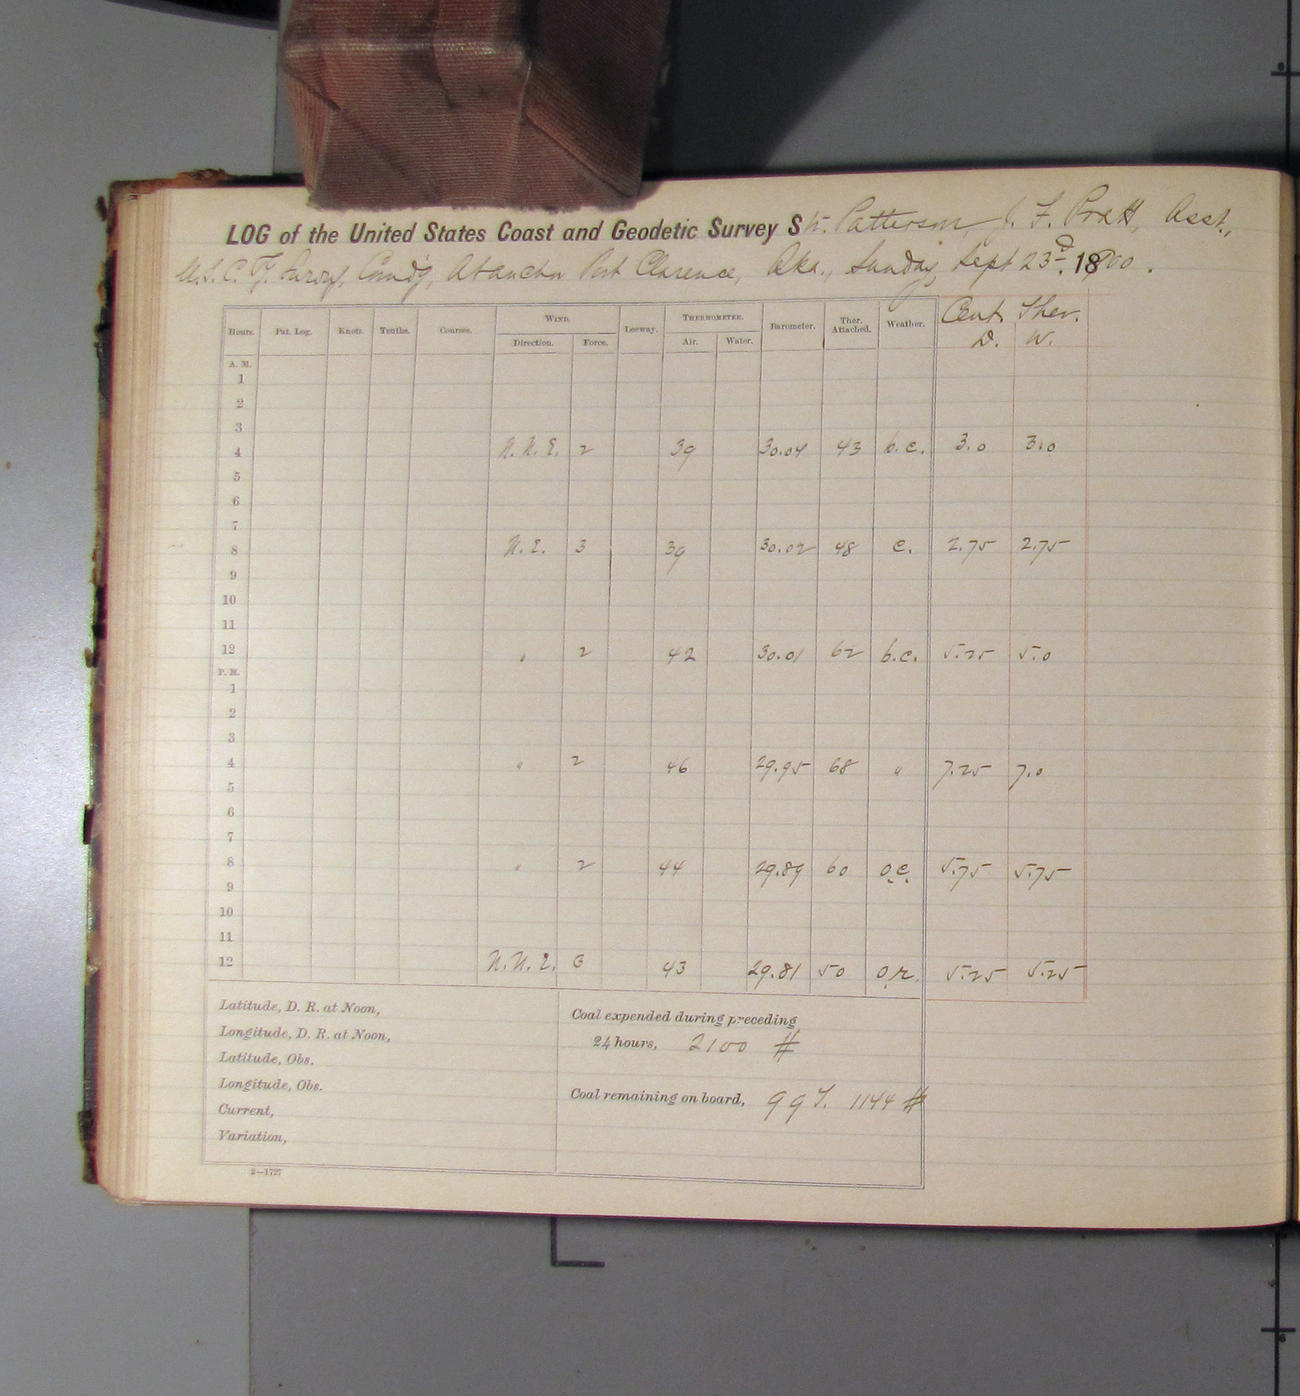 LOG of the United States Coast and Geodetic Survey Str. Patterson, J. F. Pratt, Asst.,
U.S.C. & G. Survey, Comd'g, At anchor Port Clarence, Aka., Sunday, Sept 23d. 1900.
Hours. Pat. Log. Knots. Tenths. Courses. WIND. Leeway. THERMOMETER. Barometer. Ther. Attached. Weather. Cent. Ther.
Direction. Force. Air. Water. D. W.
A. M.
1
2
3
4 N.N.E. 2 39 30.04 43 b.c. 3.0 3.0
5
6
7
8 N.E. 3 39 30.02 48 c. 2.75 2.75
9
10
11
12 " 2 42 30.01 62 b.c. 5.25 5.0
P. M.
1
2
3
4 " 2 46 29.95 68 " 7.25 7.0
5
6
7
8 " 2 44 29.89 60 o.c. 5.75 5.75
9
10
11
12 N.N.E. 3 43 29.81 50 o.r. 5.25 5.25
Latitude, D. R. at Noon,
Longitude, D. R. at Noon,
Latitude, Obs.
Longitude, Obs.
Current,
Variation,
Coal expended during preceding
24 hours, 2100 #
Coal remaining on board, 99 T. 1144 #
2—1727
6
6